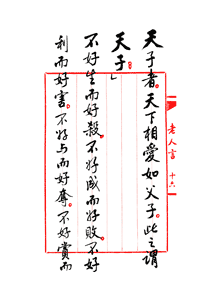 天子者。天下相愛如父子。此之謂
天子」
不好生而好殺。不好成而好敗。不好
利而好害。不好与而好奪。不好賞而
老人言 十六